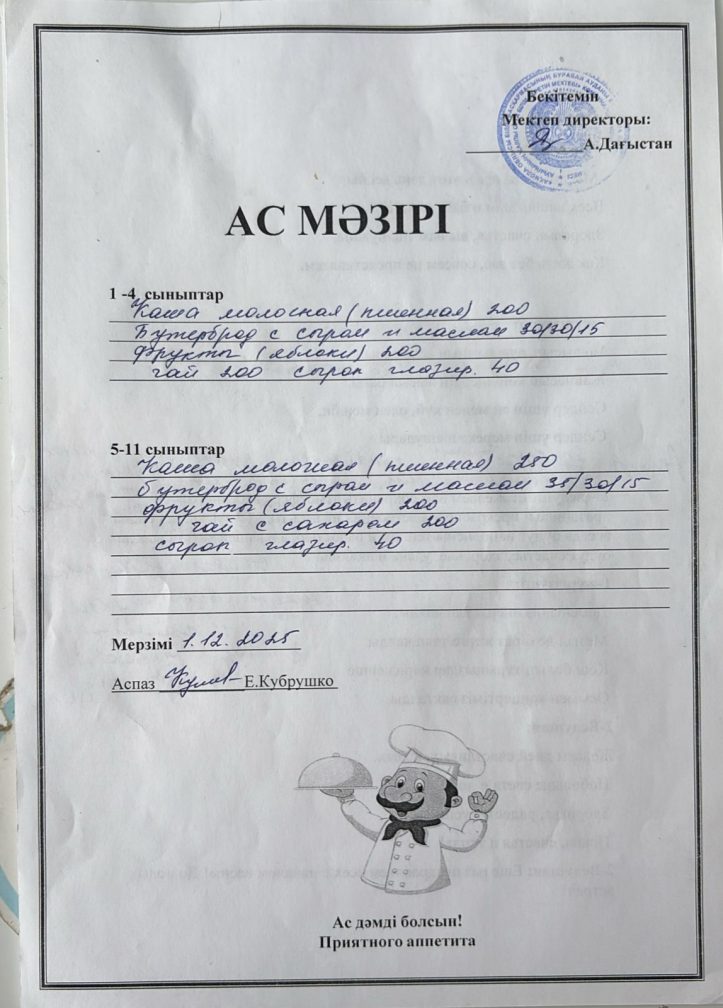 Бекітемін
Мектеп директоры:
А.Дағыстан
АС МӘЗІРІ
1 -4 сыныптар
Каша молочная (пшенная) 200
Бутерброд с сыром и маслом 30/30/15
Фрукты (яблоки) 200
чай 200 сырок глазир. 40
5-11 сыныптар
Каша молочная (пшенная) 250
бутерброд с сыром и маслом 35/30/15
фрукты (яблоки) 200
чай с сахаром 200
сырок глазир. 40
Мерзімі 1.12.2025
Аспаз Е.Кубрушко
Ас дәмді болсын!
Приятного аппетита